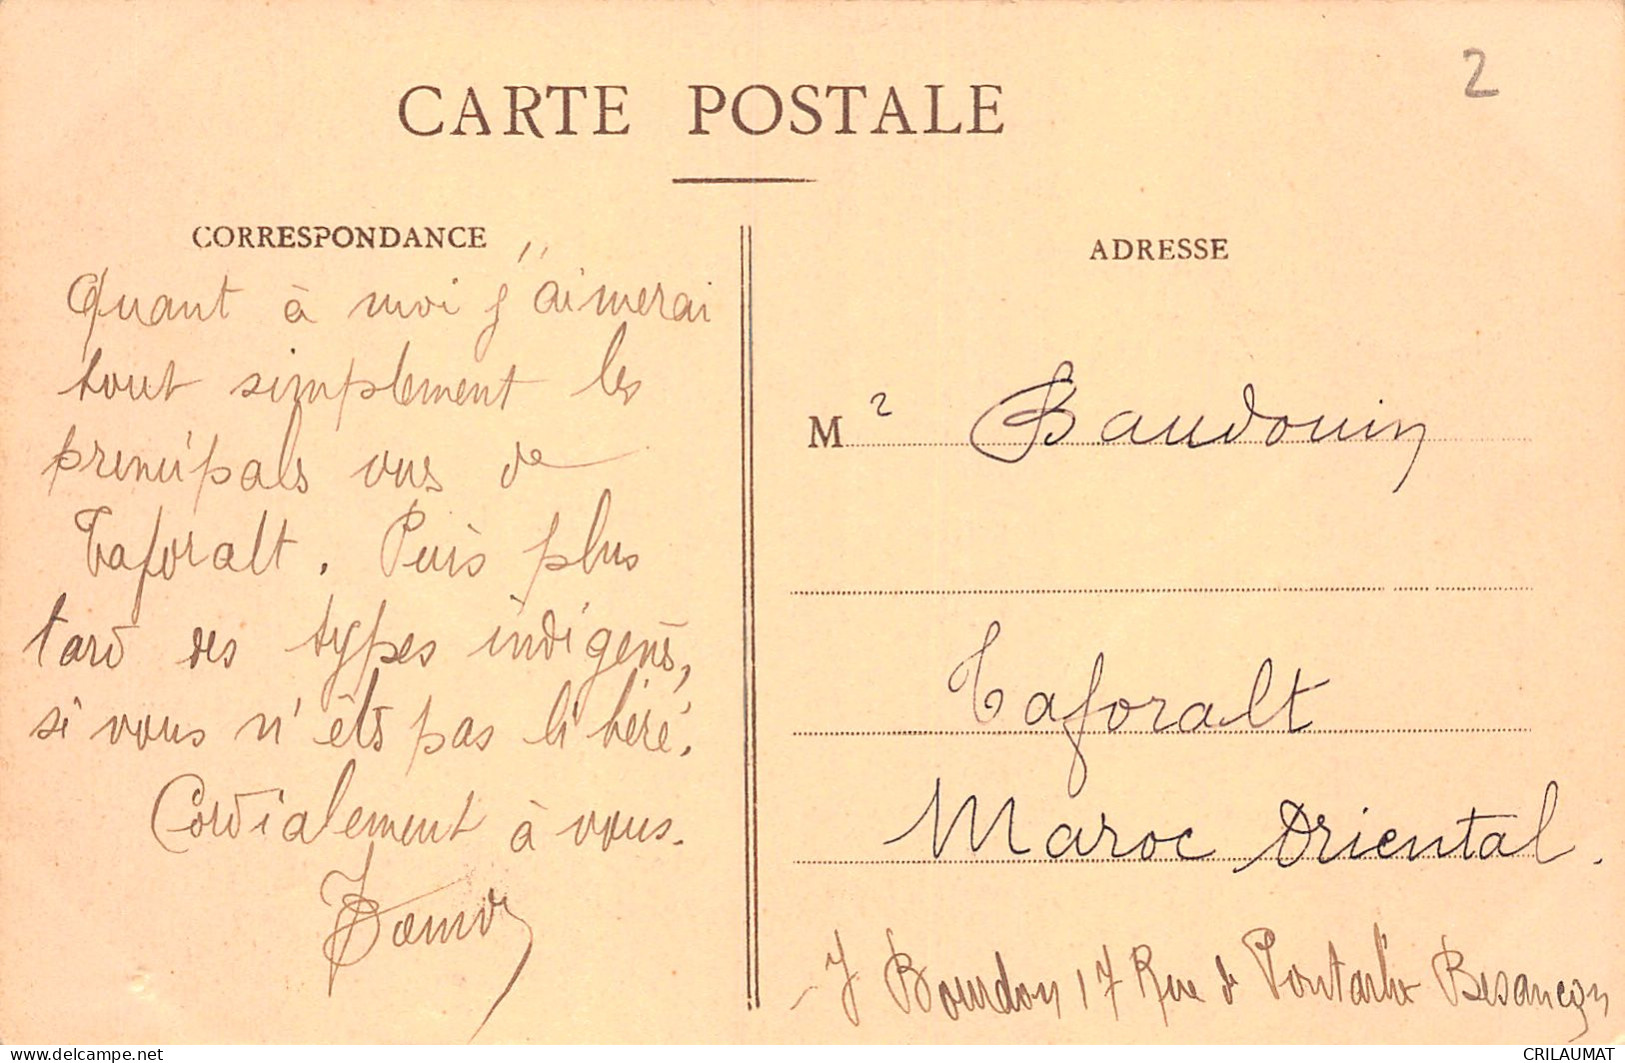 2
CARTE POSTALE
CORRESPONDANCE
Quant à moi j'aimerai
tout simplement les
principals vus de
Taforalt. Puis plus
tard des types indigens,
si vous n'êts pas libéré.
Cordialement à vous.
ADRESSE
Mr Baudouin
Taforalt
Maroc Oriental.
J Bourdon 17 Rue de Pontarlier Besançon
delcampe.net
CRILAUMAT